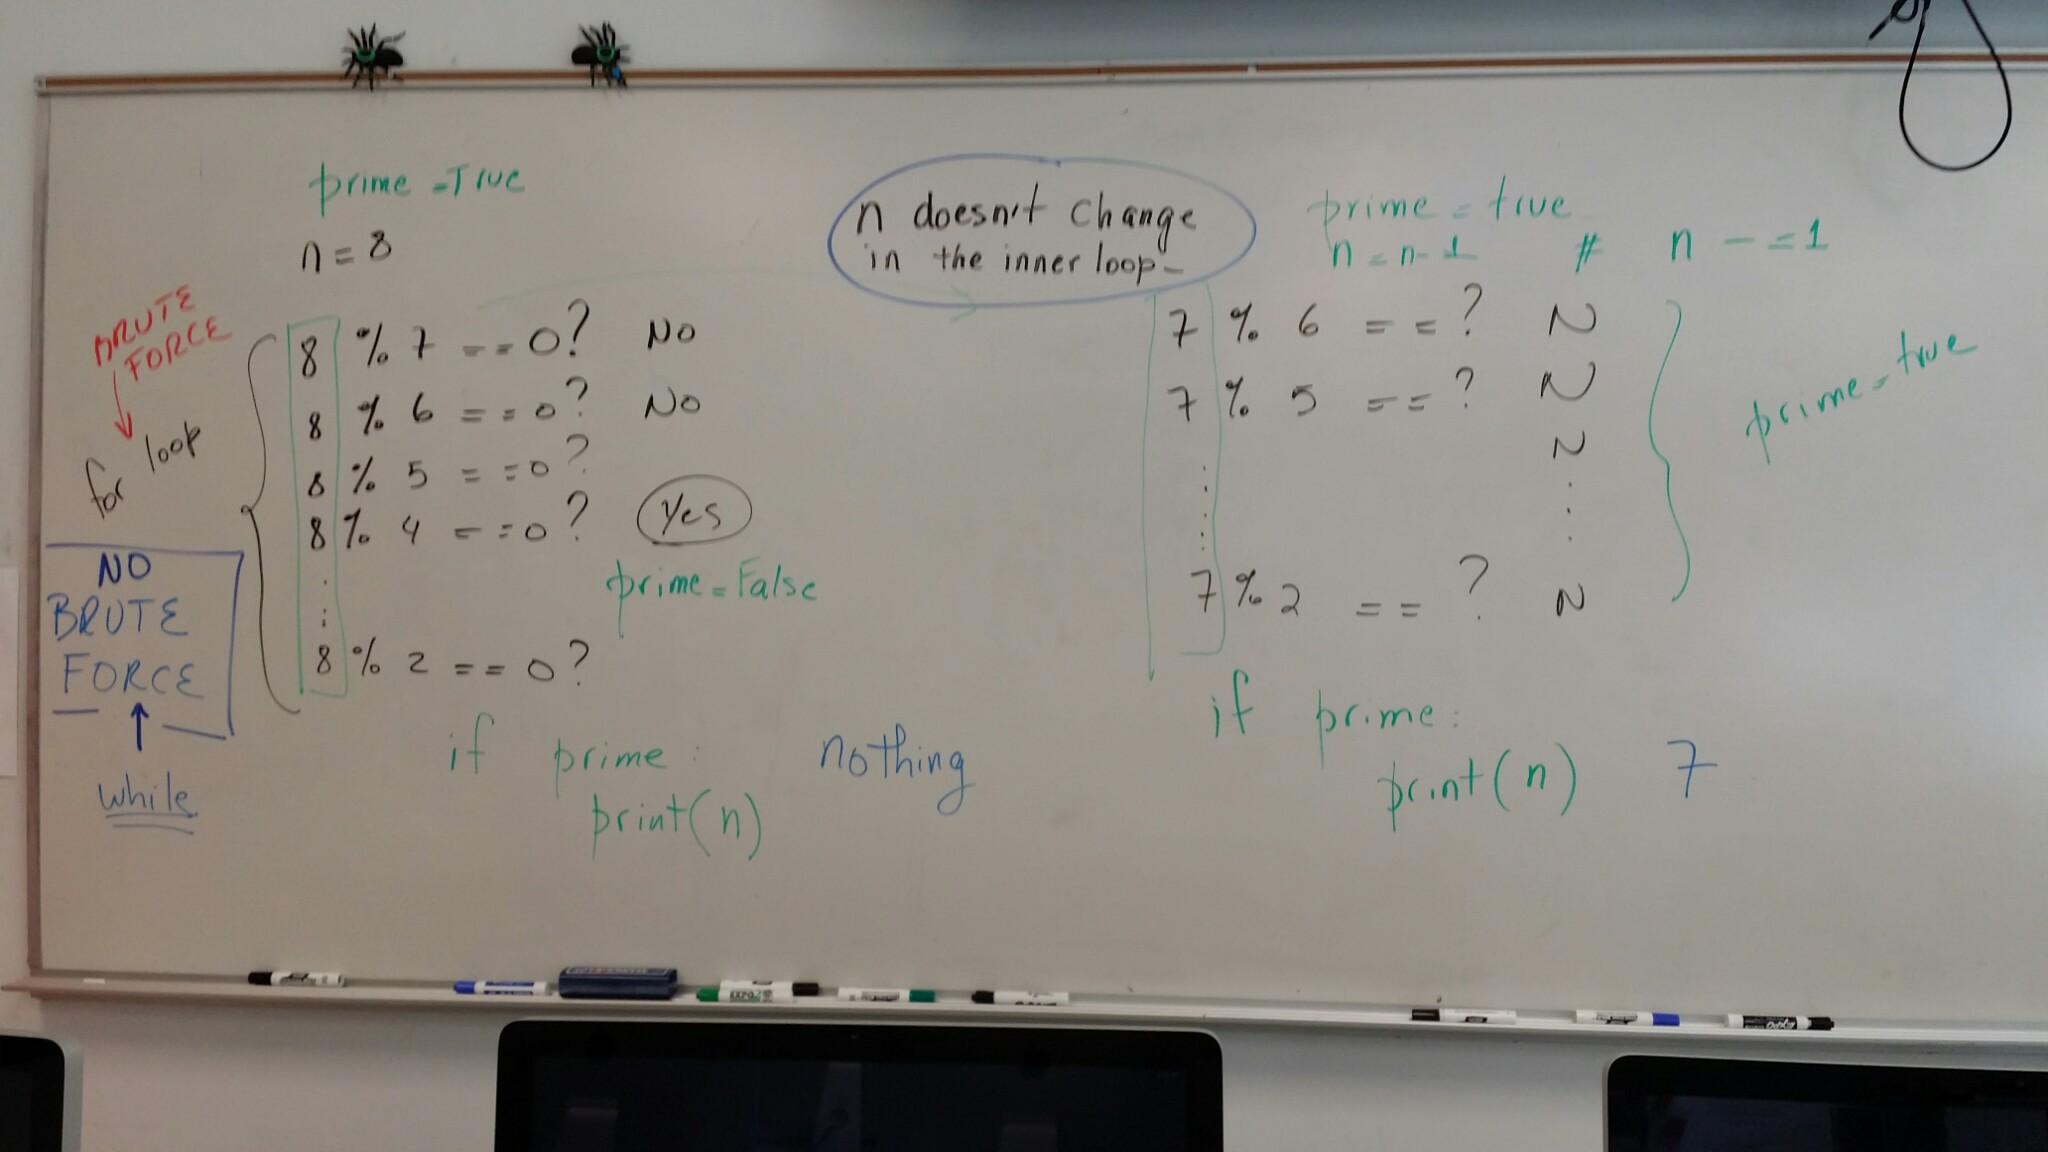 prime = True
n = 8
BRUTE
FORCE
for loop
8 % 7 == 0? No
8 % 6 == 0? No
8 % 5 == 0?
8 % 4 == 0? Yes
prime = False
:
:
8 % 2 == 0?
NO
BRUTE
FORCE
while
if prime: nothing
print(n)
n doesn't change
in the inner loop-
prime = true
n = n-1 # n -=1
7 % 6 == ? N
7 % 5 == ? N
N
:
:
7 % 2 == ? N
prime = true
if prime:
print(n) 7